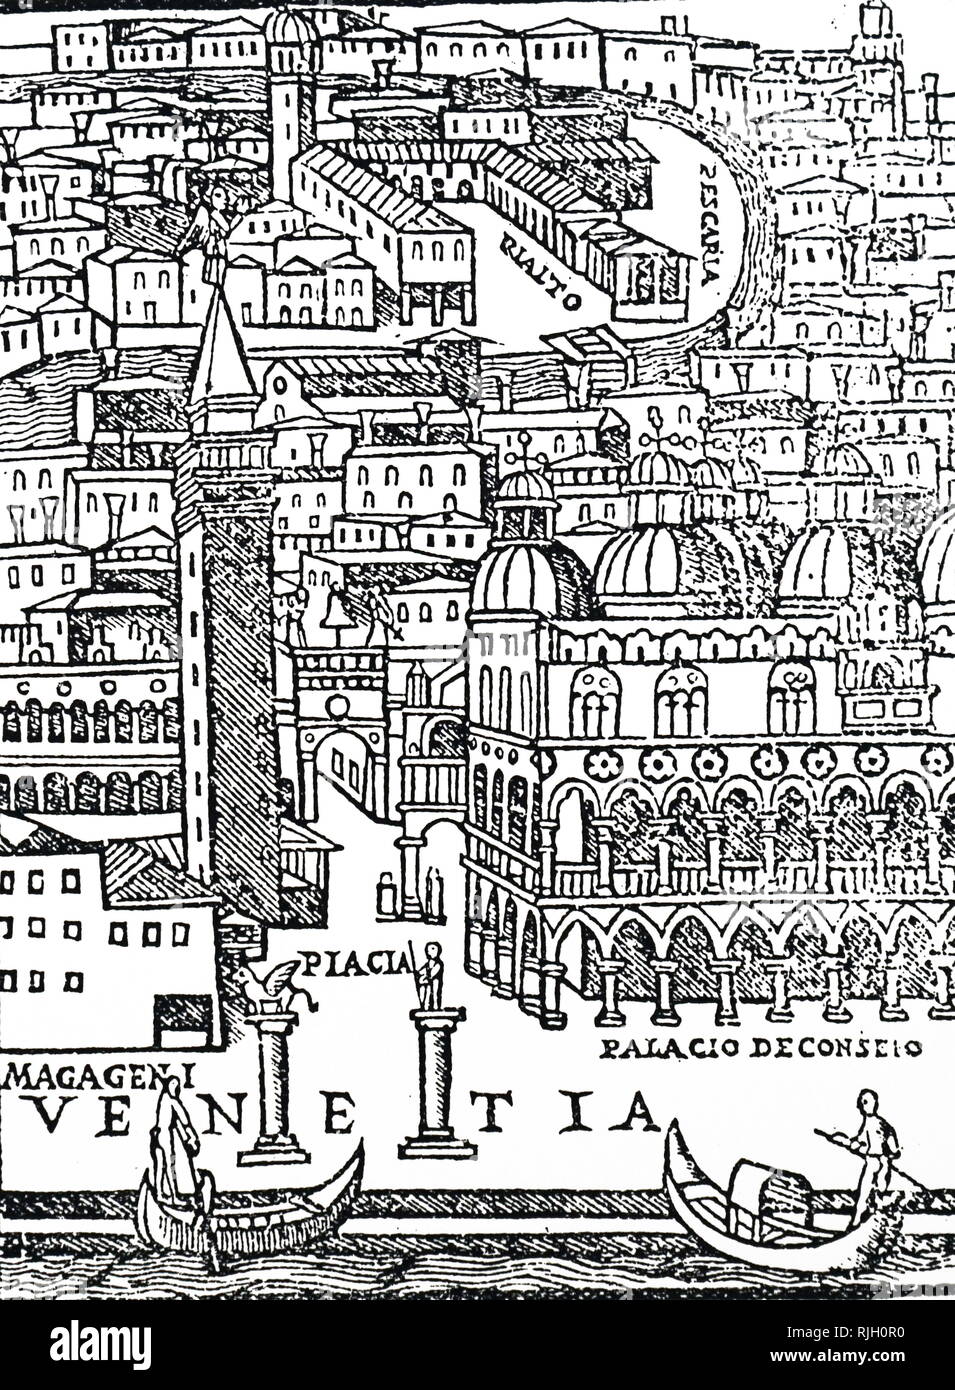 PESCARIA
RIALTO
PIACIA
PALACIO DECONSEIO
MAGAGENI
VENETIA
alamy
Image ID: RJH0R0
www.alamy.com